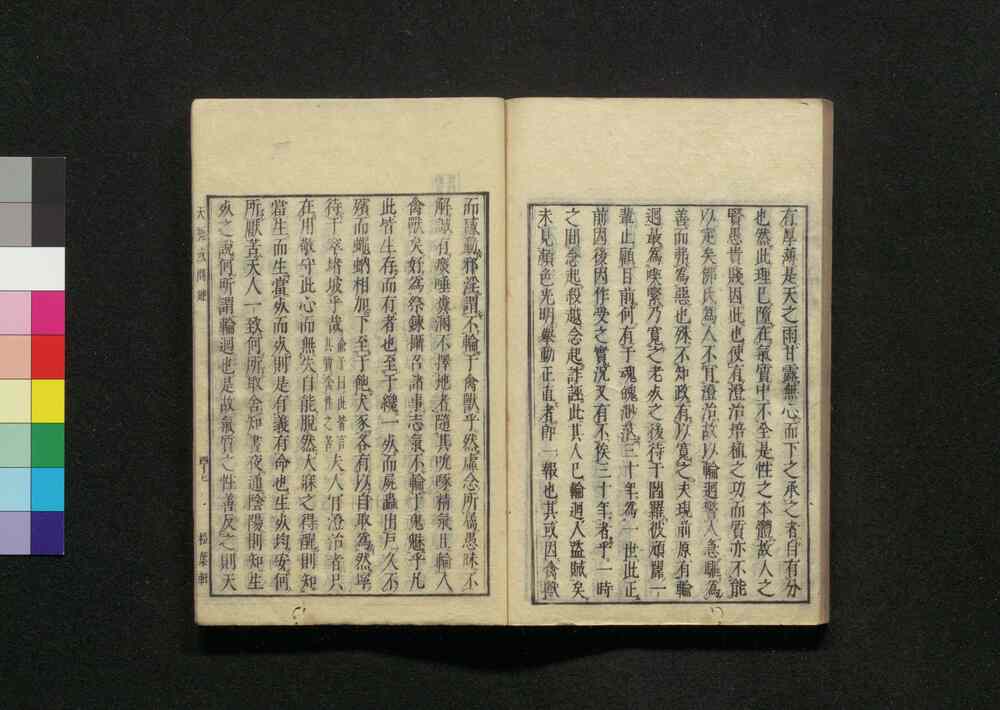 有厚薄是天之雨甘露無心而下之承之者自有分
也然此理已隨在氣質中不全是性之本體故人之
賢愚貴賤因此也使有澄治培植之功而質亦不能
以定矣佛氏為人不肯澄治故以輪迴警人急驅為
善而弗為惡也殊不知政有以寬之夫現前原有輪
迴最為喫緊乃寬之老死之後待于閻羅彼頑闇一
輩止顧目前何有于魂魄渺茫三十年為一世此正
前因後因作受之實況又有不俟三十年者乎一時
之間念起殺越念起詐誣此其人已輪迴人盜賊矣
未見顏色光明舉動正直者即一報也其或因禽獸
而擾動邪淫謂不輪于禽獸乎然慮念所屬愚昧不
解誠有痰唾糞溺不擇地者隨其吮啄精氣且輪入
禽獸矣好為祭鍊攝召諸事志氣不輪于鬼魅乎凡
此皆生存而有者也至于纔一死而屍蟲出戶久不
殯而蠅蚋相加下至于飽犬豕各有以自取為然寧
待于窣堵坡乎哉 夫人肯澄治者只
在用敬守此心而無失自能脫然大寐之得醒則知
當生而生當死而死則是有義有命也生死均安何
所厭苦天人一致何所取舍知晝夜通陰陽則知生
死之說何所謂輪迴也是故氣質之性善反之則天
松葉軒